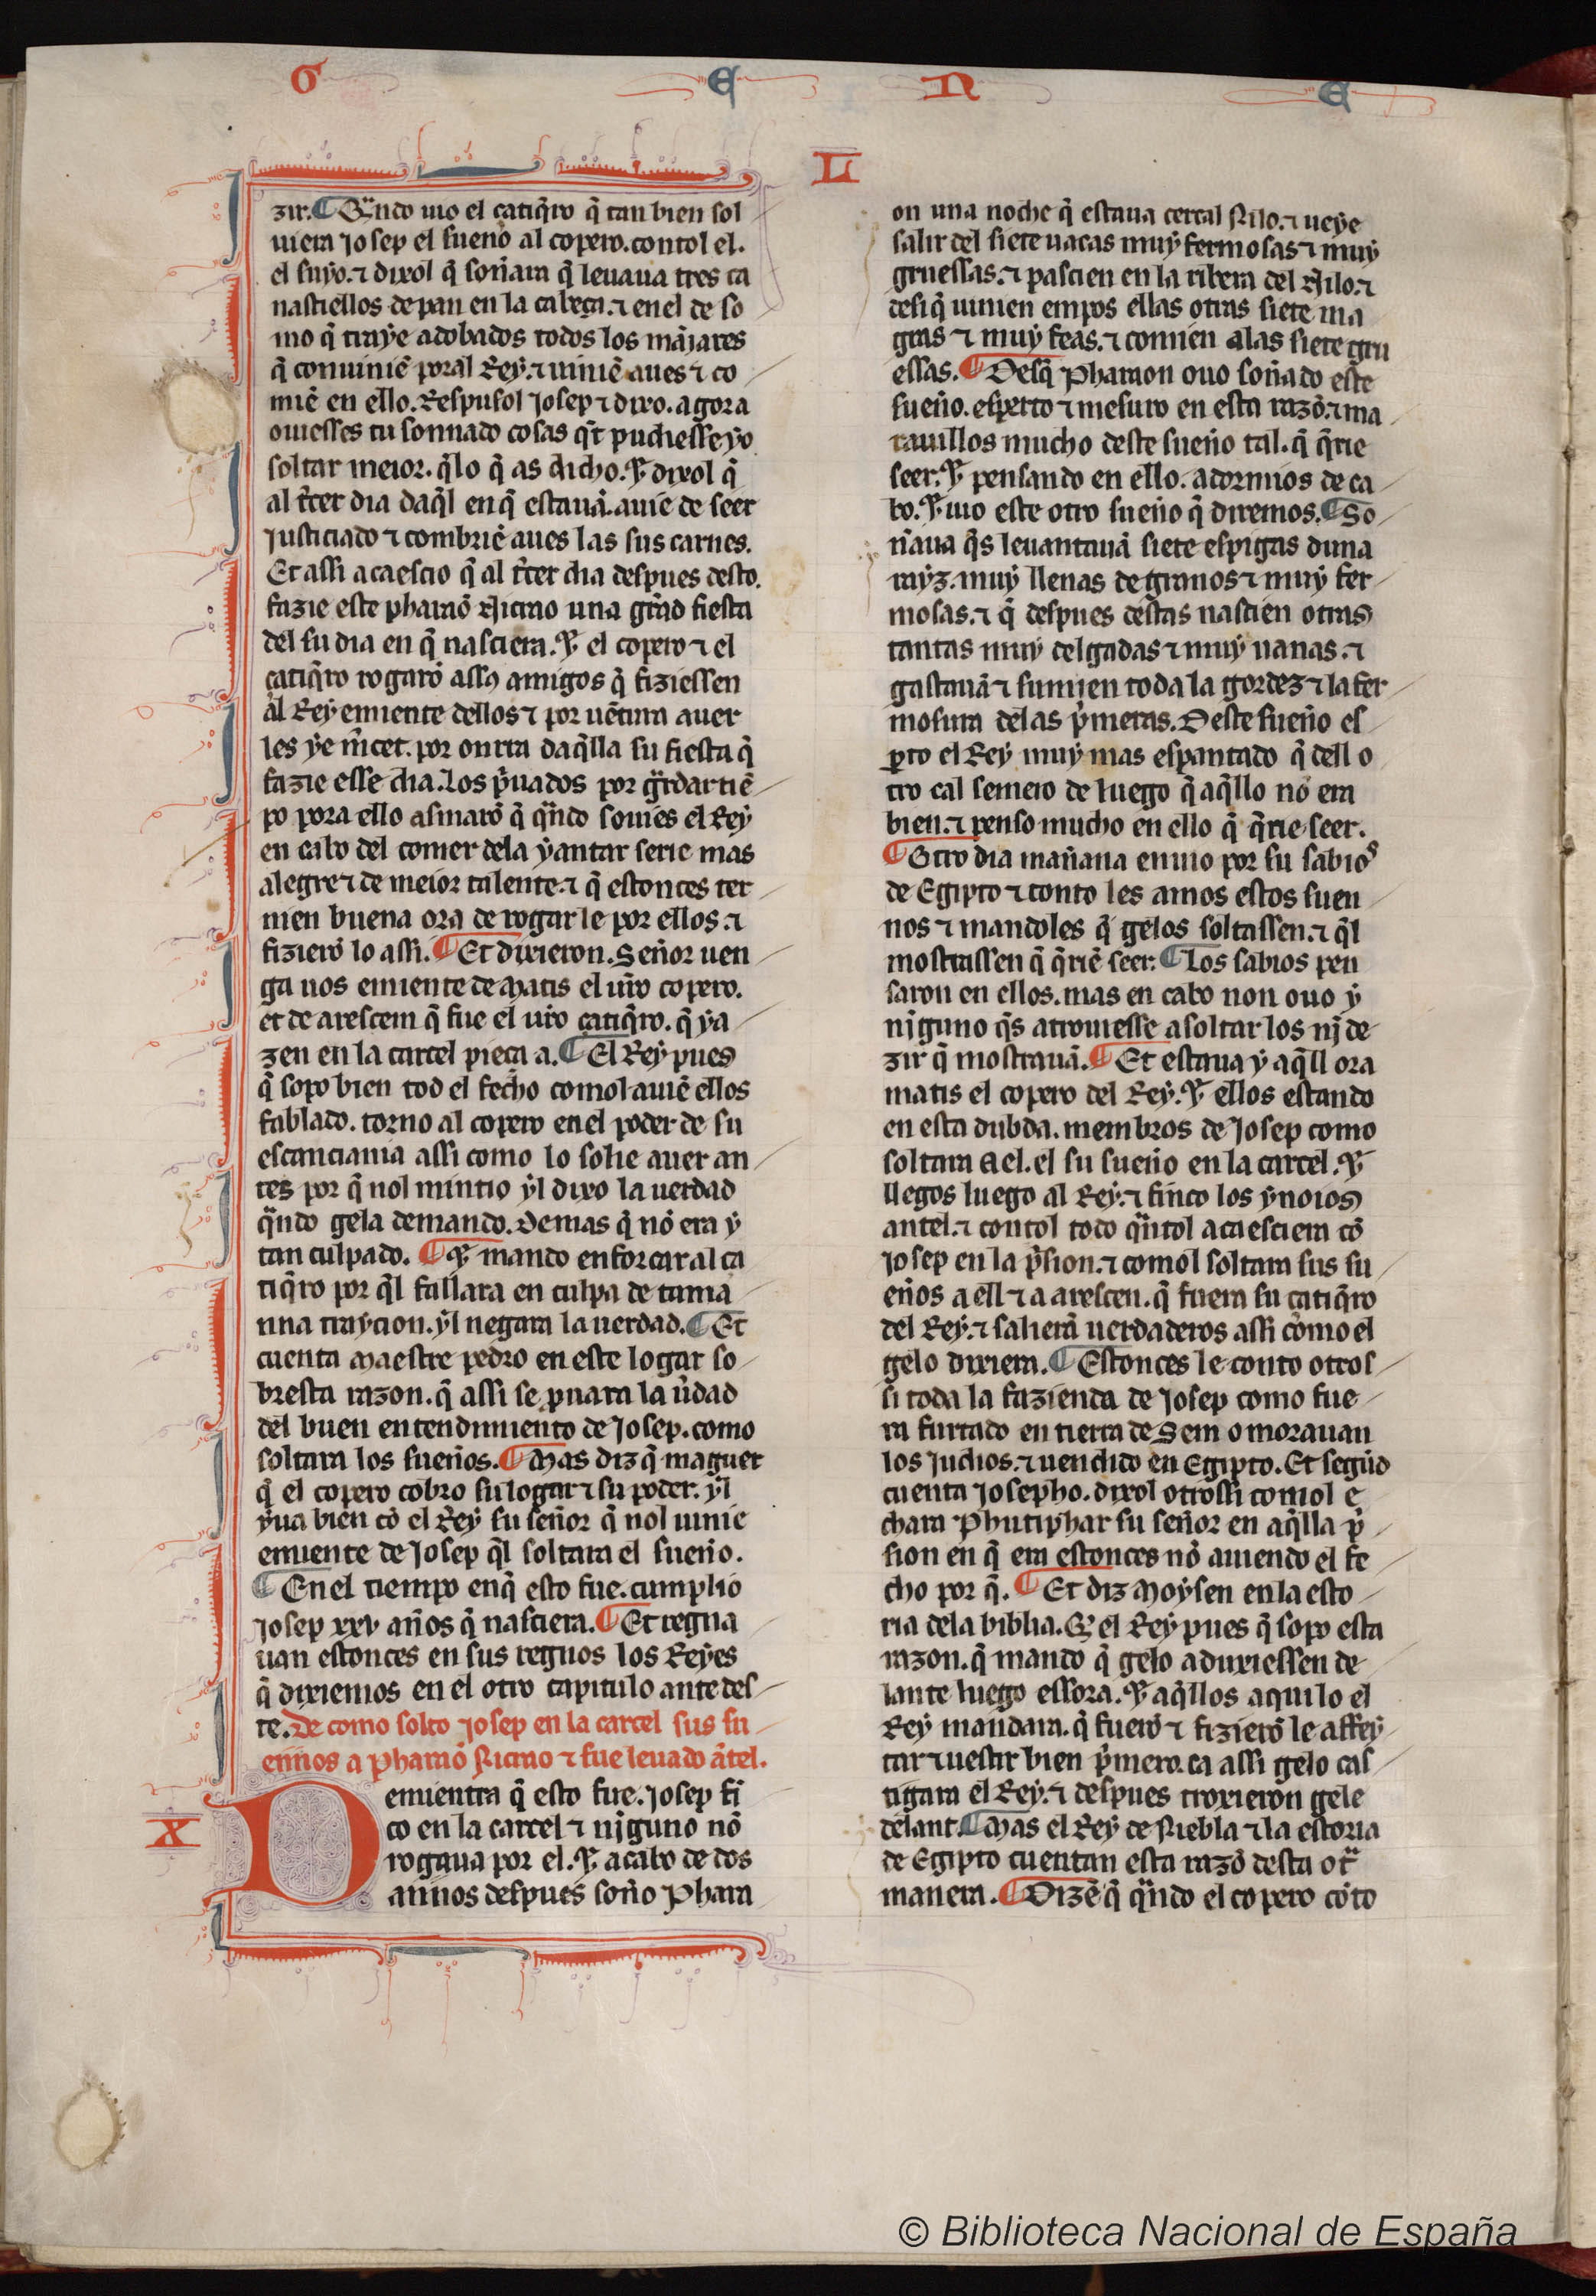 G E N E
L
zir. ¶ Qͣndo uio el çatiq̃ro q̃ tan bien sol
uiera Josep el sueno al copero. contol el.
el suyo. ⁊ dixol q̃ soñara q̃ leuaua tres ca
nastiellos de pan en la cabeça. ⁊ en el de so
mo q̃ traye adobados todos los mãiares
q̃ conuiniẽ poral Rey. ⁊ uiniẽ aues ⁊ co
miẽ en ello. Respusol Josep ⁊ dixo. agora
ouiesses tu sonnado cosas q̃t pudiesse yo
soltar meior. q̃lo q̃ as dicho. ⁊ dixol q̃
al t̃cer dia daq̃l en q̃ estauã. auie de seer
Justiciado ⁊ combriẽ aues las sus carnes.
Et assi acaescio q̃ al t̃cer dia despues desto.
fazie este pharaõ Nicrao una grãd fiesta
del su dia en q̃ nasciera. ⁊ el copero ⁊ el
çatiq̃ro rogarõ assꝯ amigos q̃ fiziessen
al Rey emiente dellos ⁊ por uẽtura auer
les ye m̃cet. por onrra daq̃lla su fiesta q̃
fazie esse dia. Los p̃uados por gͣrdar tiẽ
po pora ello asmarõ q̃ qͣndo souies el Rey
en cabo del comer dela yantar serie mas
alegre ⁊ de meior talente. ⁊ q̃ estonces ter
nien buena ora de rogar le por ellos. ⁊
fizierõ lo assi. ¶ Et dixieron. Señor uen
ga uos emiente de Matis el ur̃o copero.
et de arescem q̃ fue el ur̃o çatiq̃ro. q̃ ya
zen en la carcel pieça a. ¶ El Rey pues
q̃ sopo bien tod el fecho comol auiẽ ellos
fablado. torno al copero en el poder de su
escanciania assi como lo solie auer an
tes por q̃ nol mintio yl dixo la uerdad
qͣndo gela demando. Demas q̃ nõ era y
tan culpado. ¶ ⁊ mando enforcar al ça
tiq̃ro por q̃l fallara en culpa de tama
nna traycion. yl negara la uerdad. ¶ Et
cuenta Maestre pedro en este logar so
bresta razon. q̃ assi se ꝓuara la ũdad
del buen entendimiento de Josep. como
soltara los sueños. ¶ Mas diz q̃ maguer
q̃ el copero cobro su logar ⁊ su poder. yl
yua bien cõ el Rey su señor q̃ nol uinie
emiente de Josep q̃l soltara el sueño.
¶ En el tiempo enq̃ esto fue. cumplio
Josep xxv años q̃ nasciera. ¶ Et regna
uan estonces en sus regnos los Reyes
q̃ dixiemos en el otro capitulo ante des
te. De como solto Josep en la carcel sus su
ennos a Pharaõ Nicrao ⁊ fue leuado ãtel.
X
Demientra q̃ esto fue. Josep fĩ
co en la carcel ⁊ nĩguno nõ
rogaua por el. ⁊ acabo de dos
annos despues soño Phara
on una noche q̃ estaua cercal Nilo. ⁊ ueye
salir del siete uacas muy fermosas ⁊ muy
gruessas. ⁊ pascien en la ribera del Nilo. ⁊
desi q̃ uinien empos ellas otras siete ma
gras ⁊ muy feas. ⁊ comien alas siete gru
essas. ¶ Desq̃ Pharaon ouo soñado este
sueño. esperto ⁊ mesuro en esta razõ. ⁊ ma
rauillos mucho deste sueño tal. q̃ q̃rie
seer. ⁊ pensando en ello. adormios de ca
bo. ⁊ uio este otro sueño q̃ diremos. ¶ So
ñaua q̃s leuantauã siete espigas duna
rayz. muy llenas de granos ⁊ muy fer
mosas. ⁊ q̃ despues destas nascien otras
tantas muy delgadas ⁊ muy uanas. ⁊
gastauã ⁊ sumien toda la gordez ⁊ la fer
mosura delas p̃meras. Deste sueño es
ꝑto el Rey muy mas espantado q̃ dell o
tro cal semeio de luego q̃ aq̃llo nõ era
bien. ⁊ penso mucho en ello q̃ q̃rie seer.
¶ Otro dia mañana enuio por su sabios
de Egipto ⁊ conto les amos estos suen
nos ⁊ mandoles q̃ gelos soltassen. ⁊ q̃l
mostrassen q̃ q̃riẽ seer. ¶ Los sabios pen
saron en ellos. mas en cabo non ouo y
nĩguno q̃s atrouiesse a soltar los nĩ de
zir q̃ mostrauã. ¶ Et estaua y aq̃ll ora
matis el copero del Rey. ⁊ ellos estando
en esta dubda. membros de Josep como
soltara a el. el su sueño en la carcel. ⁊
llegos luego al Rey. ⁊ finco los ynoios
antel. ⁊ contol todo qͣntol acaesciera cõ
Josep en la p̃sion. ⁊ comol soltara sus su
eños a ell ⁊ a arescen. q̃ fuera su çatiq̃ro
del Rey. ⁊ salierã uerdaderos assi como el
gelo dixiera. ¶ Estonces le conto otros
si toda la fazienda de Josep como fue
ra furtado en tierra de Sem o morauan
los Judios. ⁊ uendido en Egipto. Et segũd
cuenta Josepho. dixol otrossi comol e
chara Phutiphar su señor en aq̃lla p̃
sion en q̃ era estonces nõ auiendo el fe
cho por q̃. ¶ Et diz Moysen en la esto
ria dela biblia. Q̃ el Rey pues q̃ sopo esta
razon. q̃ mando q̃ gelo aduxiessen de
lante luego essora. ⁊ aq̃llos aqui lo el
Rey mandara. q̃ fuerõ ⁊ fizierõ le affey
tar ⁊ uestir bien p̃mero. ca assi gelo cas
tigara el Rey. ⁊ despues troxieron gele
delant. ¶ Mas el Rey de Niebla ⁊ la estoria
de Egipto cuentan esta razõ desta otͣ
manera. ¶ Dizẽ q̃ qͣndo el copero cõto
© Biblioteca Nacional de España